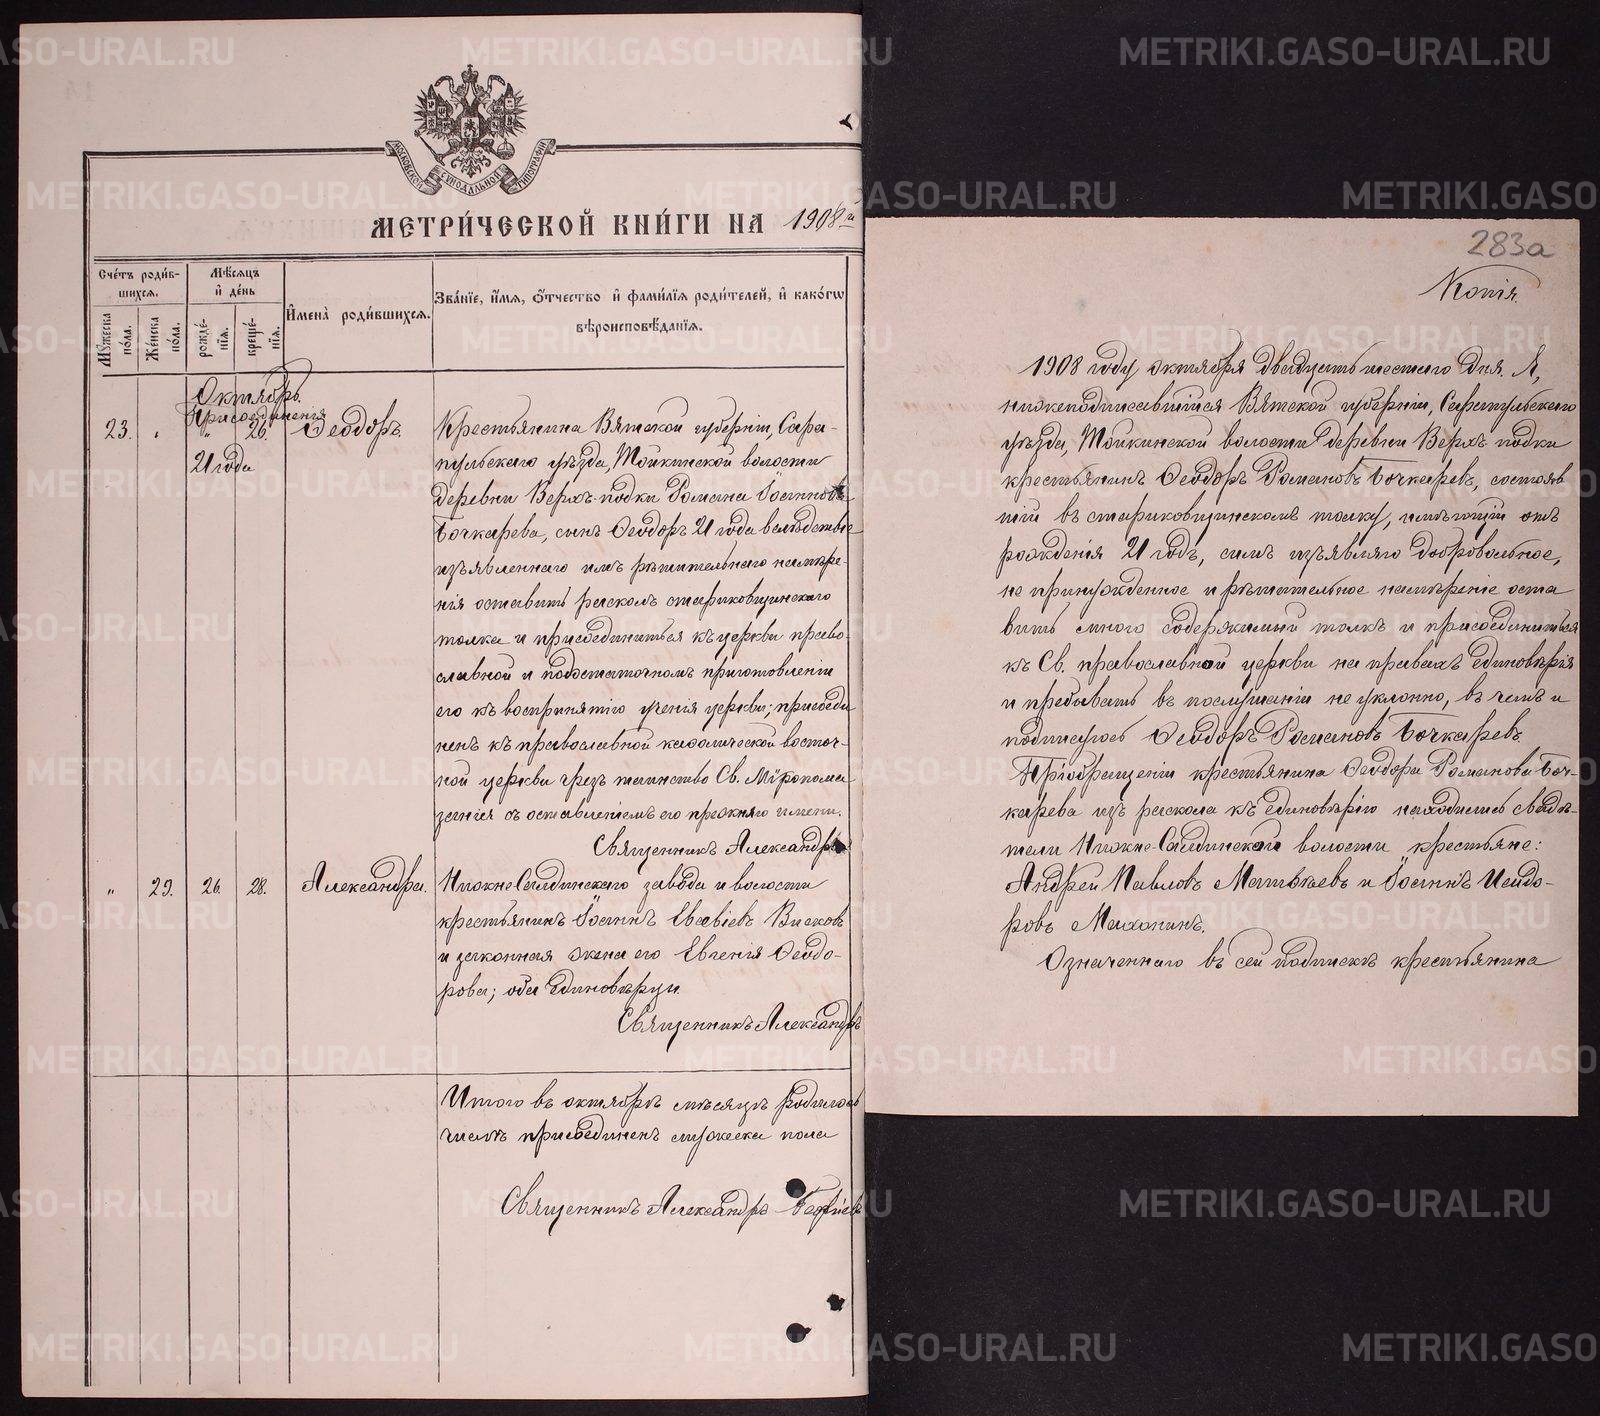 МЕТРИ́ЧЕСКОЙ КНИ́ГИ НА 1908 й
Сче́тъ роди́в-
шихсѧ.
Мꙋ́жеска по́ла.
Же́нска по́ла.
Мѣ́сѧцъ и҆ де́нь
рожде́-нїѧ.
креще́-нїѧ.
И҆мена̀ роди́вшихсѧ.
Зва́нїе, и҆́мѧ, ѻ҆́тчество и҆ фами́лїѧ роди́телей, и҆ како́гѡ
вѣроисповѣ́данїѧ.
Октябрь.
Присоединенія
23. „ „ 26. Ѳеодоръ.
21 года
Крестьянина Вятской губерніи, Сара-
пульскаго уѣзда, Тойкинской волости
деревни Верхъ-подки Романа Іоаннова
Бочкарева, сынъ Ѳеодоръ 21 года вслѣдствіе
изъявленнаго имъ рѣшительнаго намѣре-
нія оставить расколъ стариковщинскаго
толка и присоединиться къ церкви право-
славной и по достаточномъ приготовленіи
его къ воспринятію ученія церкви; присоеди
ненъ къ православной каѳолической восточ-
ной церкви чрезъ таинство Св. Мѵропома
занія съ оставленіемъ его прежняго имени.
Священникъ Александръ
„ 29. 26. 28. Александра.
Нижне-Салдинскаго завода и волости
крестьянинъ Іоаннъ Евсѣвіевъ Висковъ
и законная жена его Евгенія Ѳеодо-
рова; оба единовѣрцы.
Священникъ Александръ
Итого въ октябрѣ мѣсяцѣ родилось
числѣ присоединенъ мужеска пола
Священникъ Александръ
283а
Копія.
1908 году октября двадцать шестаго дня. Я,
нижеподписавшійся Вятской губерніи, Сарапульскаго
уѣзда, Тойкинской волости деревни Верхъ-подки
крестьянинъ Ѳеодоръ Романовъ Бочкаревъ, состояв
шій въ стариковщинскомъ толку, имѣющій отъ
рожденія 21 годъ, симъ изъявляю добровольное,
не принужденное и рѣшительное намѣреніе оста
вить мною содержимый толкъ и присоединиться
къ Св. православной церкви на правахъ единовѣрія
и пребывать въ послушаніи не уклонно, въ чемъ и
подписуюсь Ѳеодоръ Романовъ Бочкаревъ.
При обращеніи крестьянина Ѳеодора Романова Боч-
карева изъ раскола къ единовѣрію находились свидѣ-
тели Нижне-Салдинской волости крестьяне:
Андрей Павловъ Матвѣевъ и Іоаннъ Исидо-
ровъ Маханинъ.
Означеннаго въ сей подпискѣ крестьянина